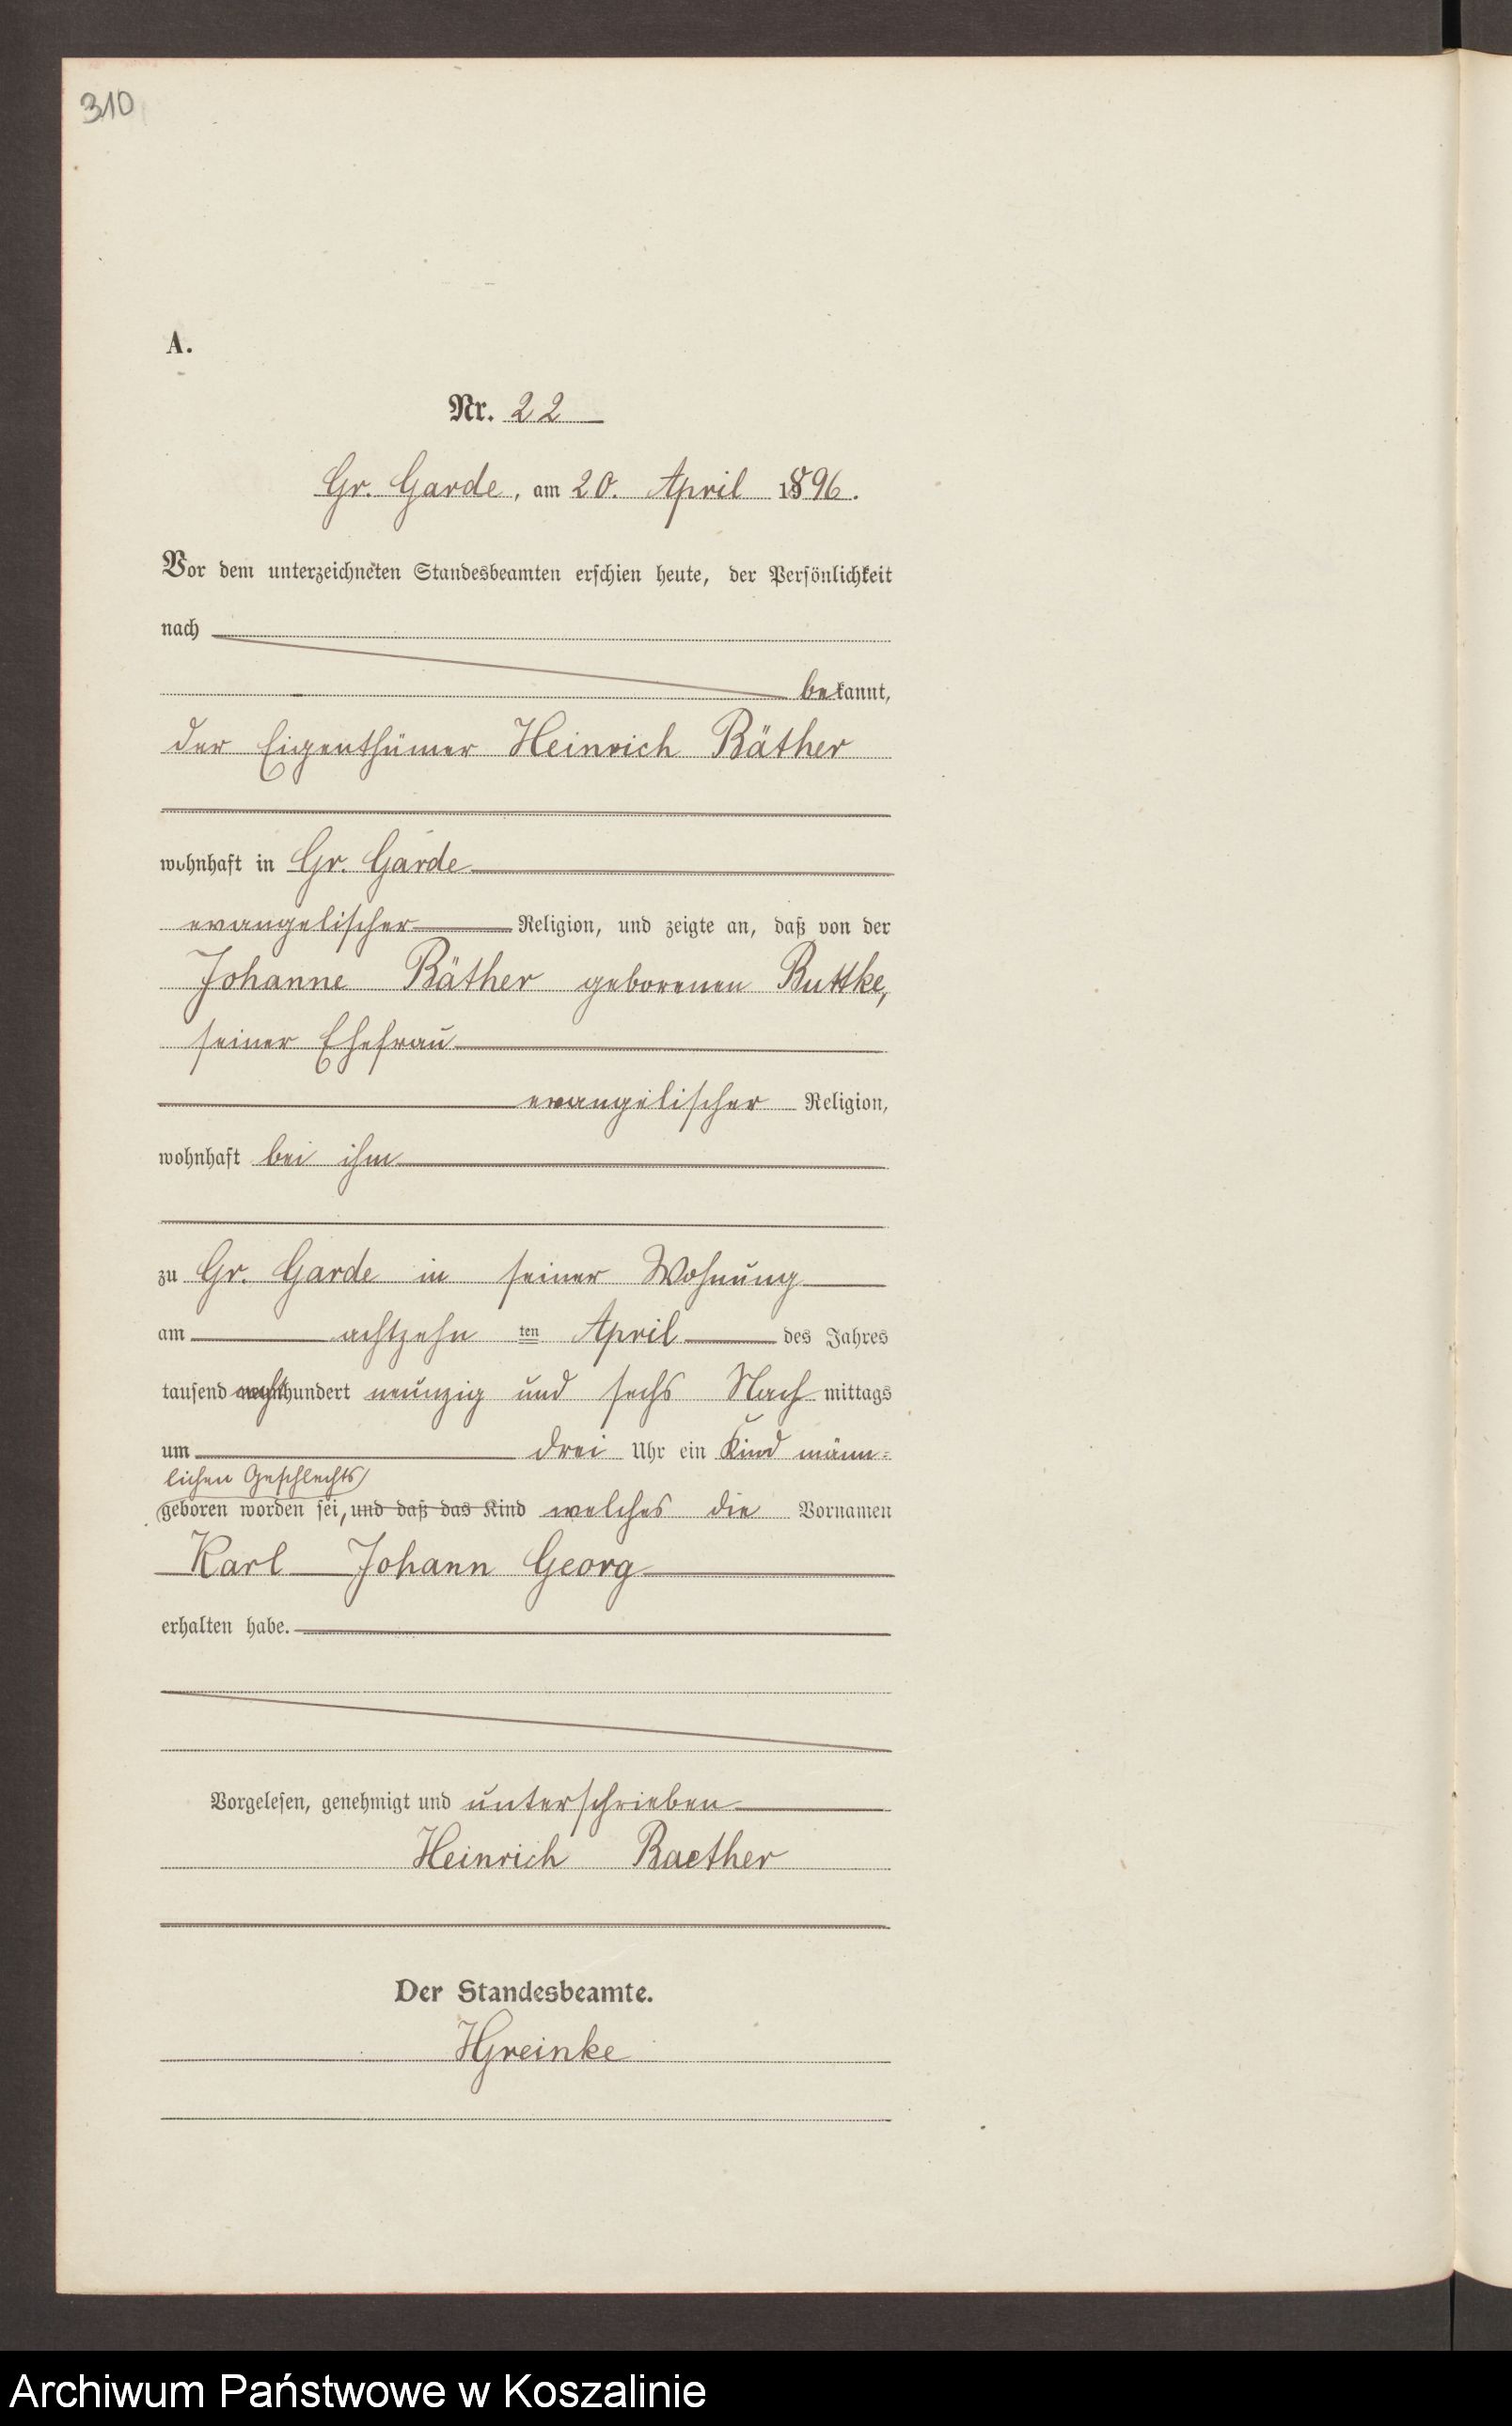 310
A.
Nr. 22
Gr. Garde, am 20. April 1896.
Vor dem unterzeichneten Standesbeamten erschien heute, der Persönlichkeit
nach
bekannt,
der Eigenthümer Heinrich Bäther
wohnhaft in Gr. Garde
evangelischer Religion, und zeigte an, daß von der
Johanne Bäther geborenen Buttke,
seiner Ehefrau
evangelischer Religion,
wohnhaft bei ihm
zu Gr. Garde in seiner Wohnung
am achtzehn ten April des Jahres
tausend achthundert neunzig und sechs Nach mittags
um drei Uhr ein Kind männ=
lichen Geschlechts
geboren worden sei, und daß das Kind welches die Vornamen
Karl Johann Georg
erhalten habe.
Vorgelesen, genehmigt und unterschrieben
Heinrich Baether
Der Standesbeamte.
HGreinke
Archiwum Państwowe w Koszalinie